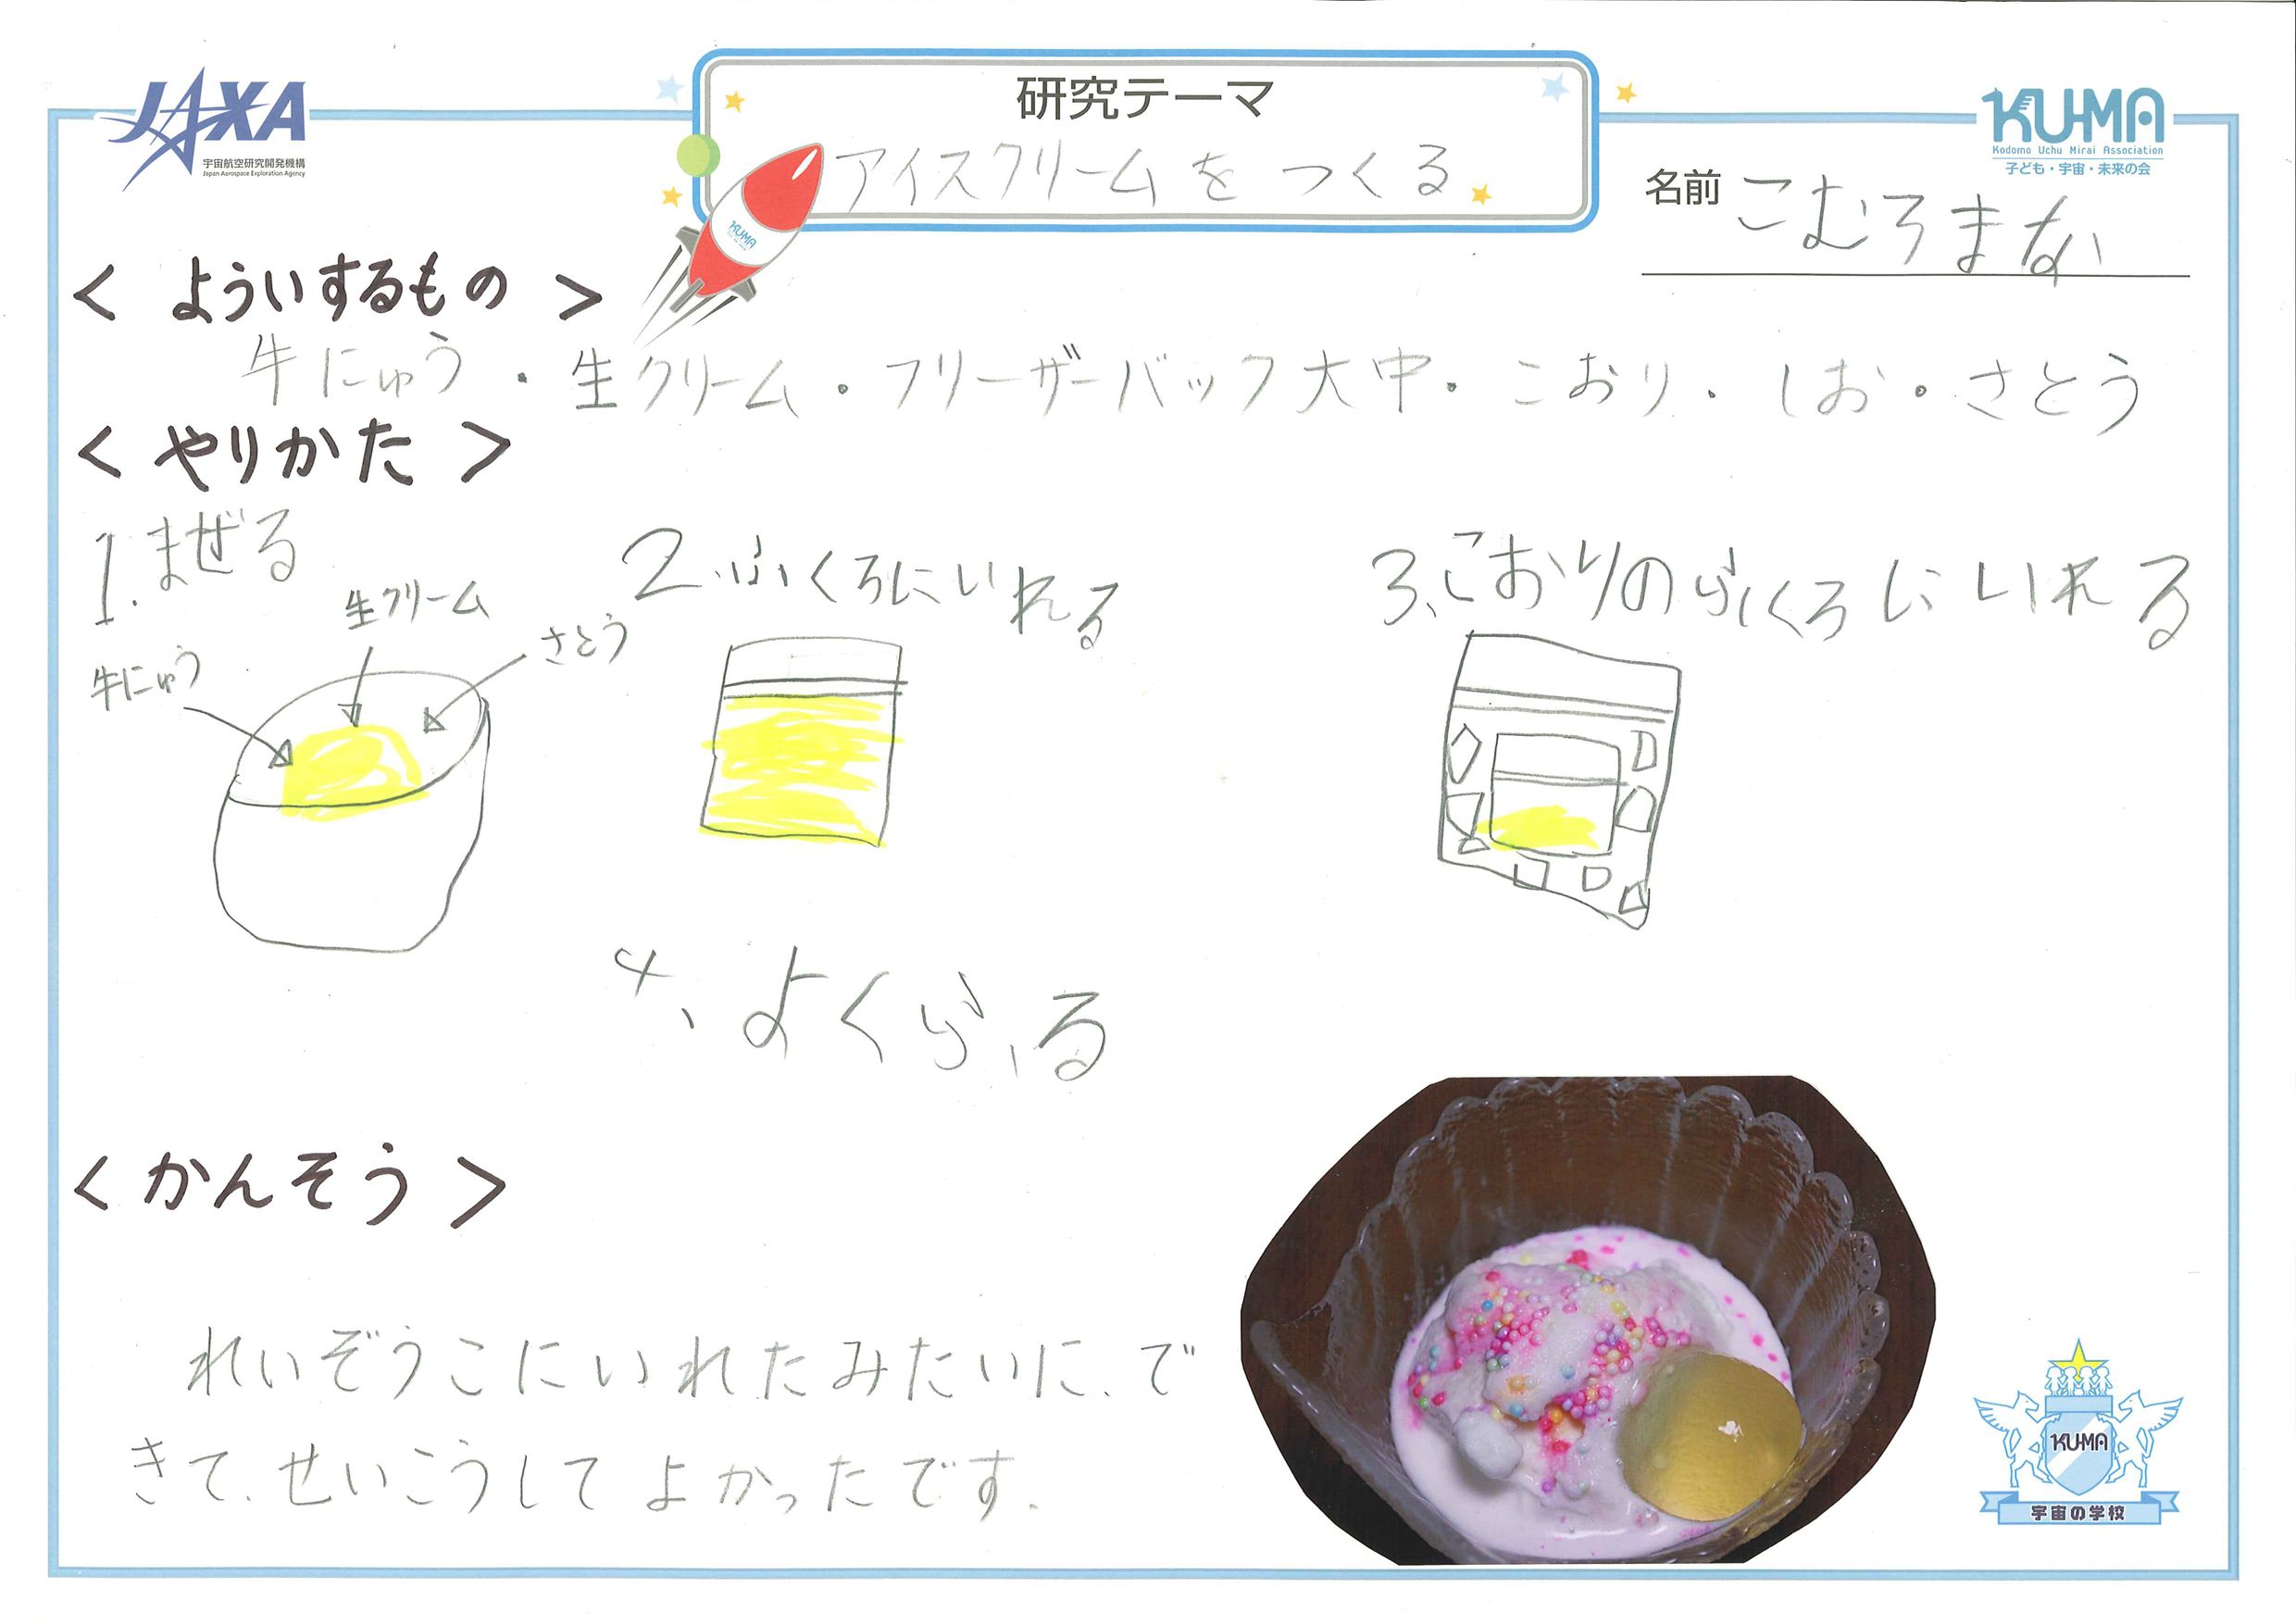 JAXA
宇宙航空研究開発機構
Japan Aerospace Exploration Agency
研究テーマ
アイスクリームをつくる
KUMA
KU-MA
Kodomo Uchu Mirai Association
子ども・宇宙・未来の会
名前 こむろまな
< よういするもの >
牛にゅう・生クリーム・フリーザーバック大中・こおり・しお・さとう
< やりかた >
1.まぜる
生クリーム
さとう
牛にゅう
2.ふくろにいれる
3、こおりのふくろにいれる
4、よくふる
< かんそう >
れいぞうこにいれたみたいに、で
きて、せいこうしてよかったです。
KU-MA
宇宙の学校